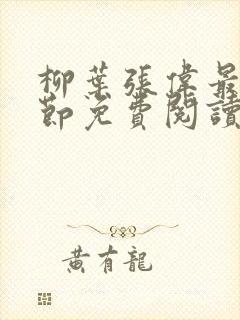 柳葉張偉最
節免費閱讀
黃有龍